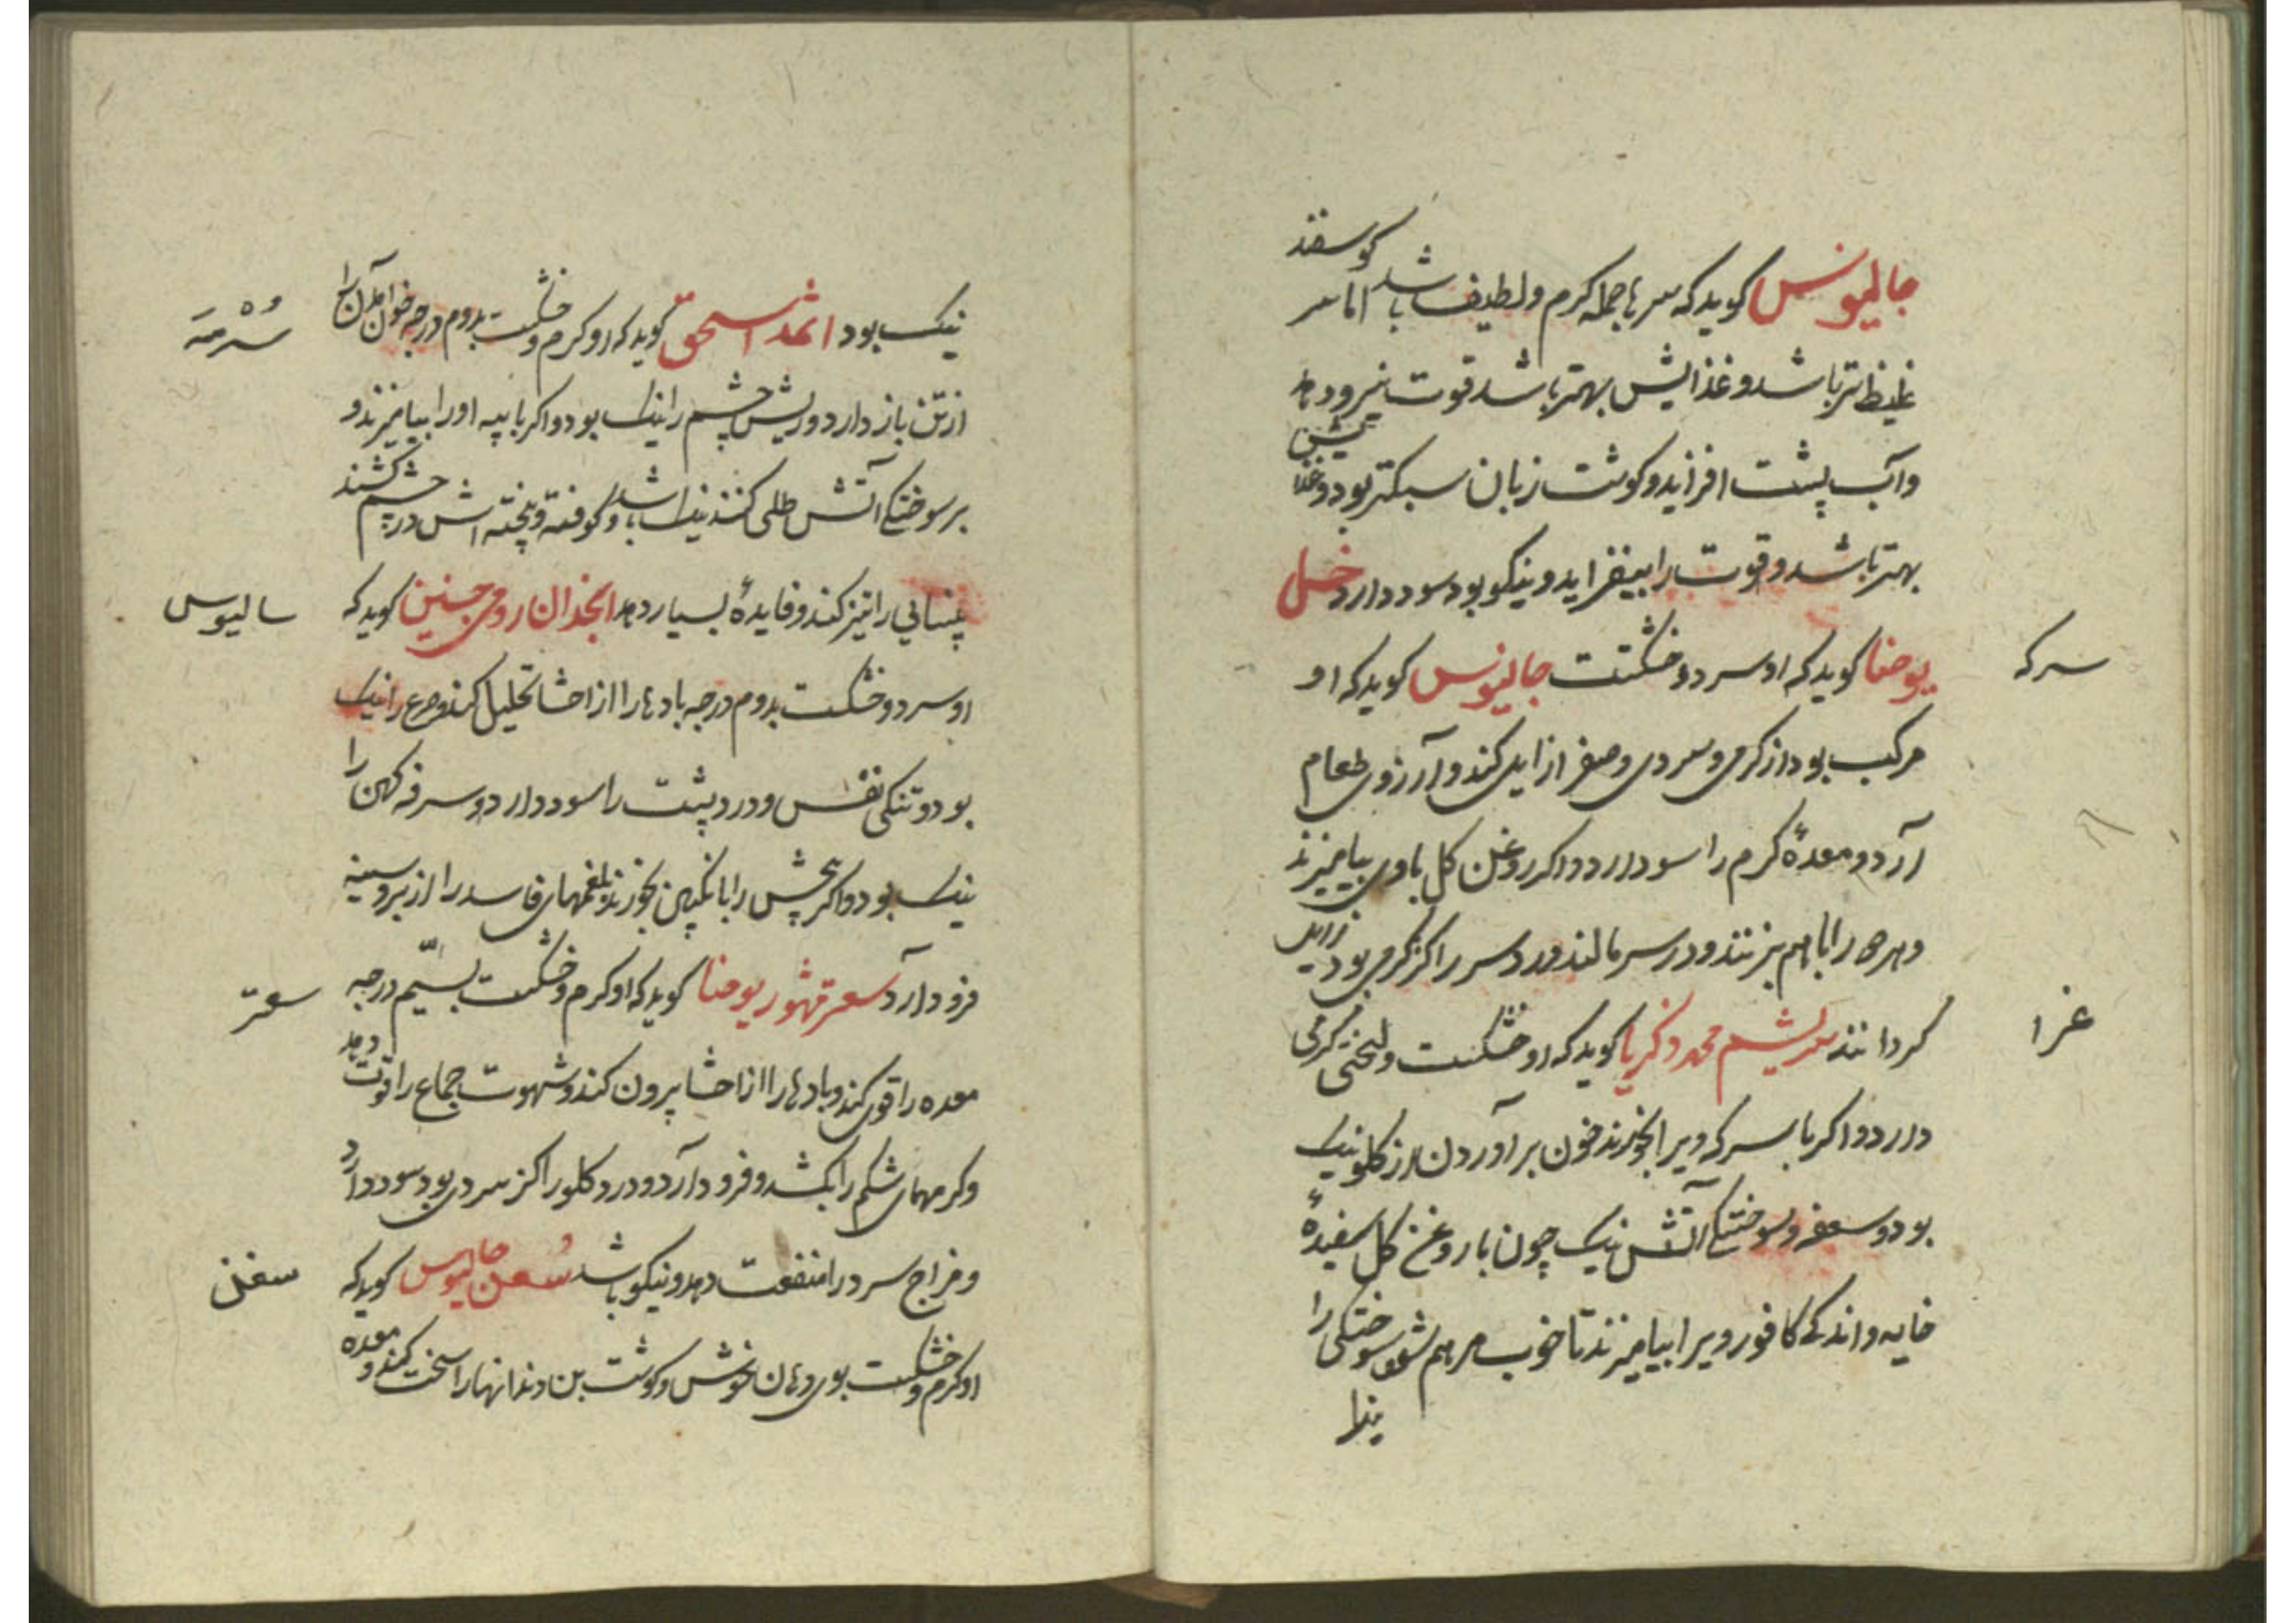 جالینوس کوید که سرها جمله کرم ولطیف باشد اما سر کوسفند
غلیظ تر باشد و غذایش بهتر باشد قوت نیرو دهد
وآب پشت افزاید و کوشت زبان سبکتر بود و غذایش
بهتر باشد و قوت را بیفزاید و نیکو بود سود دارد خل
سرکه
یوحنا کوید که او سرد و خشکست جالینوس کوید که او
مرکب بود از کرمی و سردی و صفرا زایل کند و آرزوی طعام
آرد و معدهٔ کرم را سود دارد و اکر روغن کل باوی بیامیزند
وهردو را باهم بزنند و در سر مالند درد سر را کز کرمی بود زایل
غرا
کردانند سریشم محمد زکریا کوید که او خشکست و لختی کرمی
دارد و اکر با سرکه ویرا بخورند خون بر آوردن از کلو نیک
بود و سعفه و سوختکی آتش نیک چون با روغن کل سفیدهٔ
خایه و اندکی کافور ویرا بیامیزند تا خوب مرهم شود سوختکی را
نیک بود اثمد اسحق کوید که او کرم و خشکست بدوم درجه خون آمدن را
سرمه
از تن باز دارد و ریش چشم را نیک بود و اکر با پیه او را بیامیزند و
بر سوختکی آتش طلی کنند نیک باشد و کوفته و پخته اش در چشم کشند
بینایی را تیز کند و فایدهٔ بسیار دهد انجدان رومی حنین کوید که
سالیوس
او سرد و خشکست بدوم درجه بادها را از احشا تحلیل کند و صرع را نیک
بود و تنکی نفس و درد پشت را سود دارد و سرفه کهن را
نیک بود و اکر بیخش را با انکبین بخورند بلغمهای فاسد را از بر و سینه
فرود آرد سعتر مشهور یوحنا کوید که او کرم و خشکست بسیم درجه
سعتر
معده را قوی کند و بادها را از احشا بیرون کند و شهوت جماع را قوت دهد
وکرمهای شکم را بکشد و فرود آرد و درد کلو را کز سردی بود سود دارد
و مزاج سرد را منفعت دهد و نیکو باشد سعن جالینوس کوید که
سعن
او کرم و خشکست بوی دهان خوش و کوشت بن دندانها را سخت کند و معده